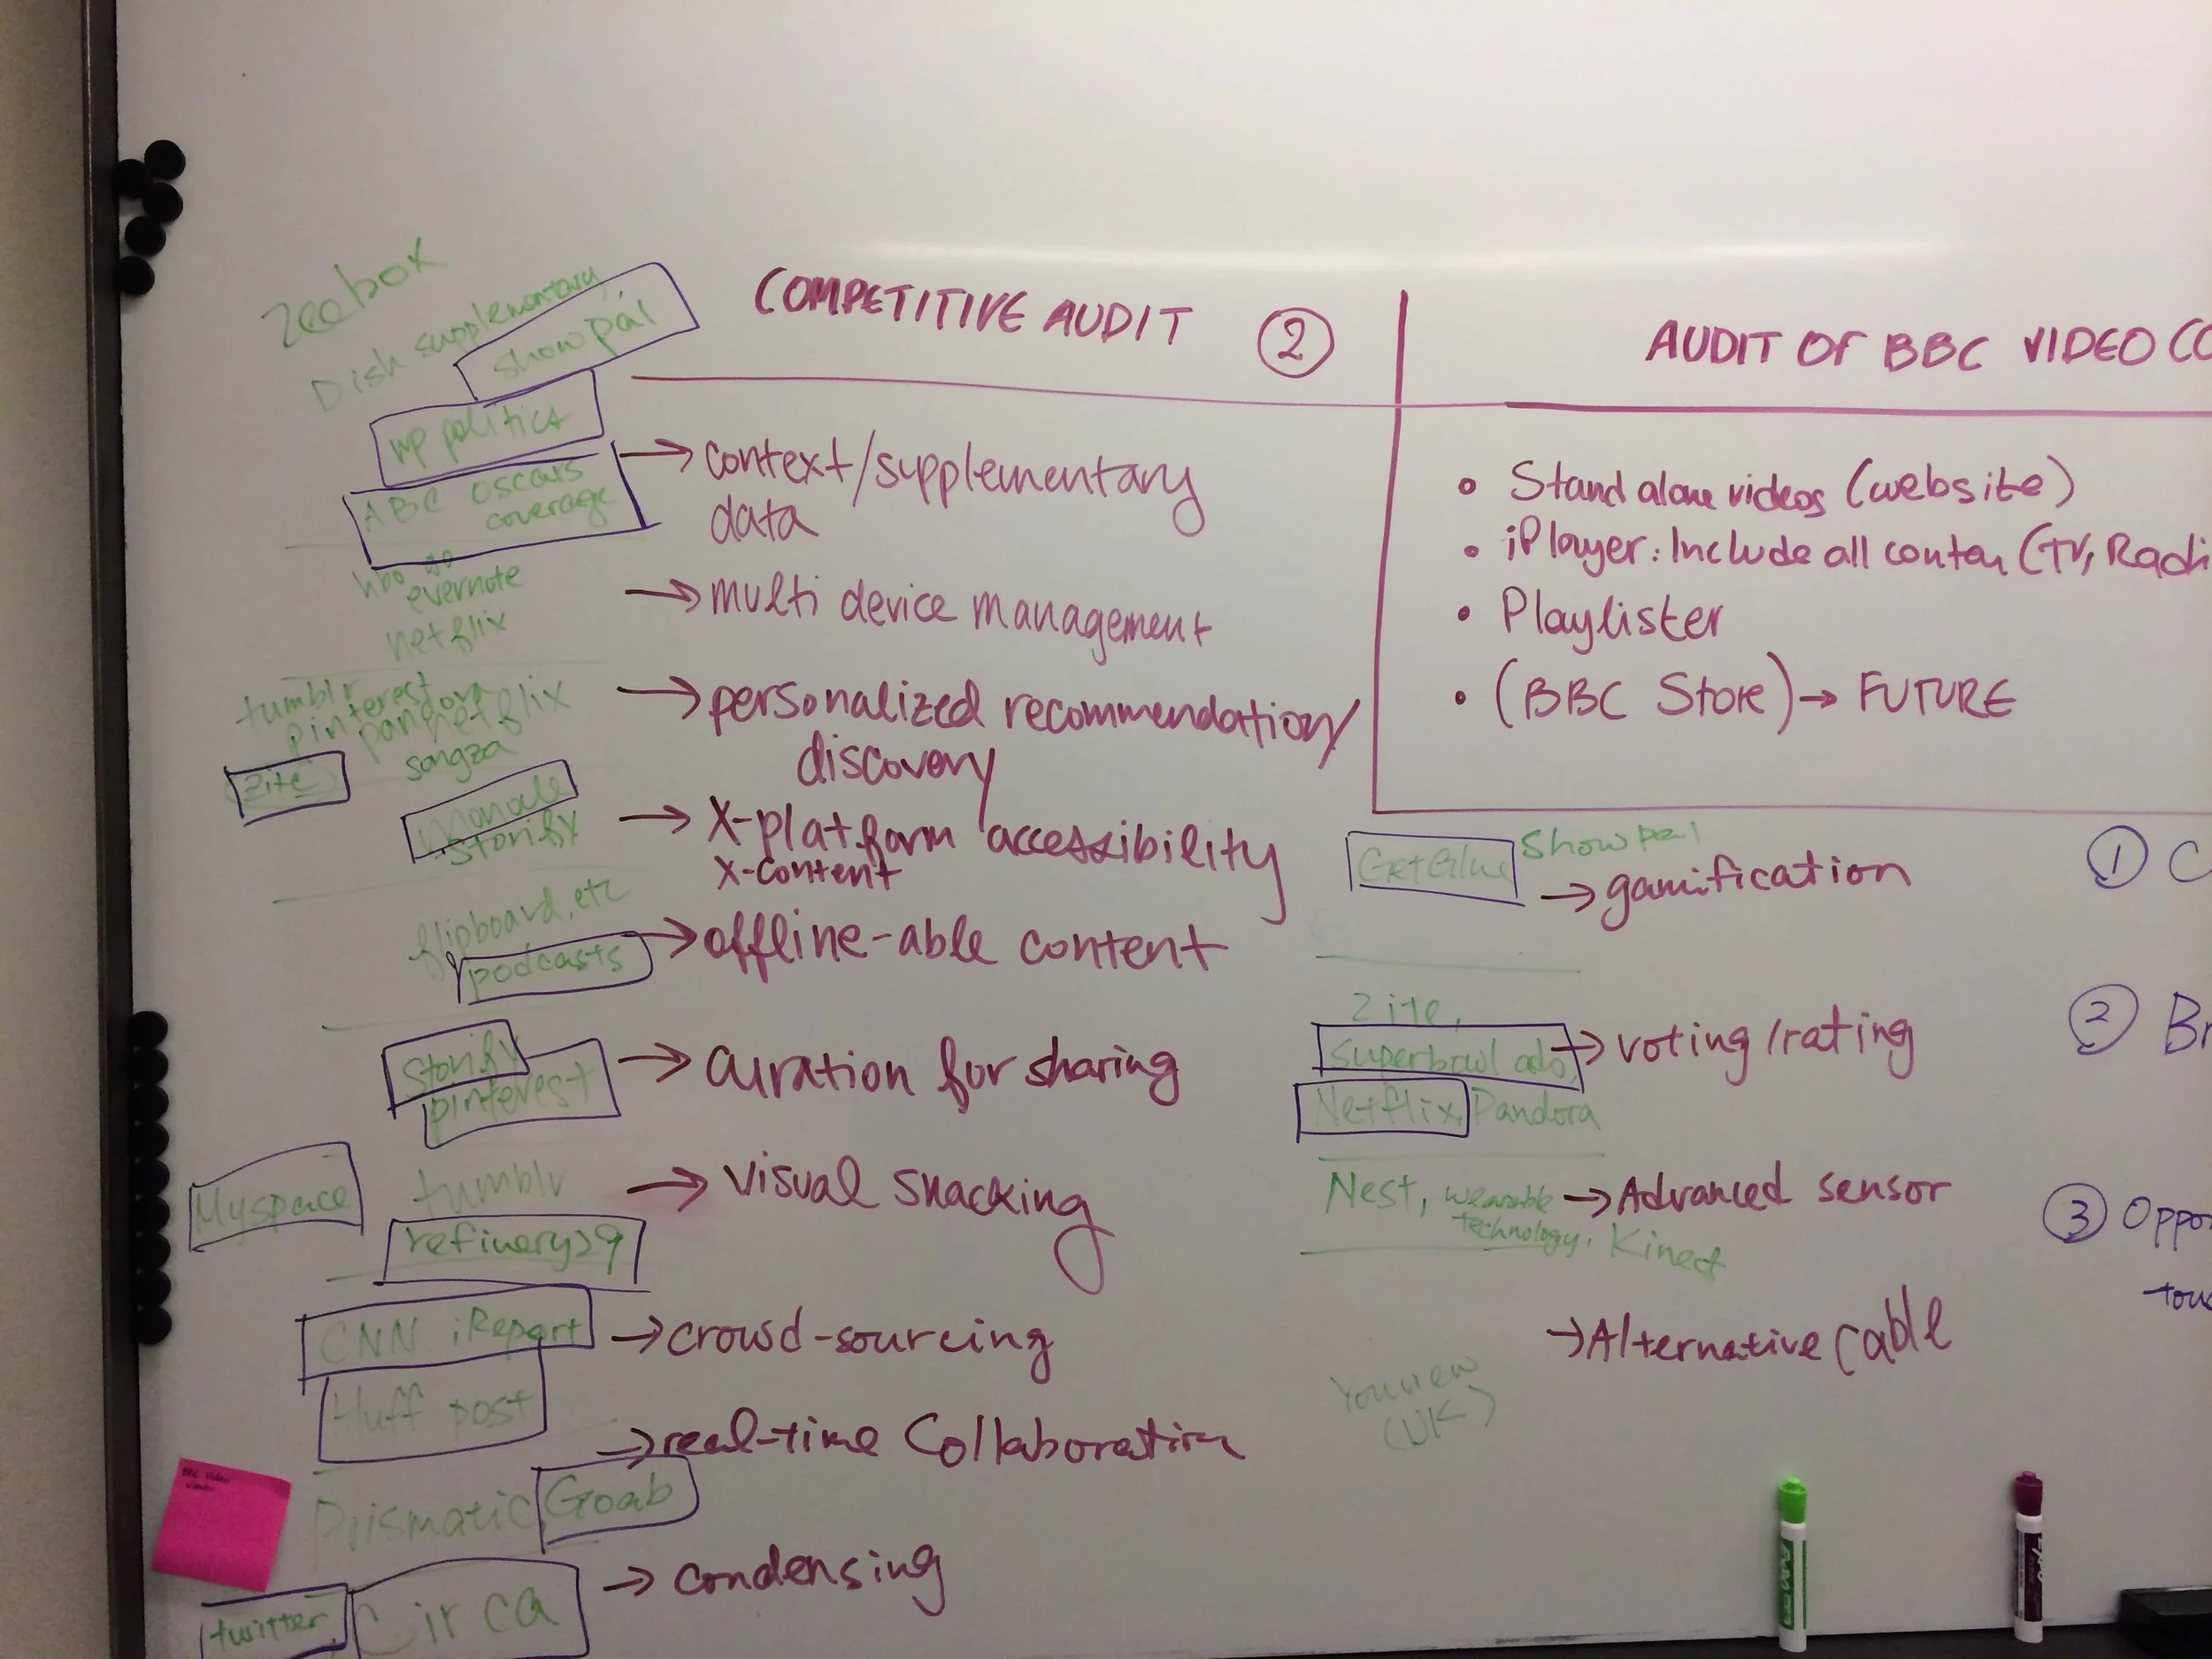 zeebox
Dish supplementary,
showpal
COMPETITIVE AUDIT 2
wp politics
ABC oscars
coverage
→ context/supplementary
data
hbo go
evernote
netflix
→ multi device management
tumblr
pinterest
pandora
netflix
songza
zite
→ personalized recommendation/
discovery
storify
→ X-platform accessibility
X-content
flipboard, etc
podcasts
→ offline-able content
storify
pinterest
→ curation for sharing
Myspace
tumblr
refinery29
→ visual snacking
CNN iReport
Huff post
→ crowd-sourcing
→ real-time Collaboration
Prismatic, Goab
twitter, Circa
→ condensing
AUDIT OF BBC VIDEO CO
• Stand alone videos (website)
• iPlayer: Include all conten (TV, Radi
• Playlister
• (BBC Store) → FUTURE
GetGlue showpal
→ gamification
Zite,
superbowl ads,
Netflix, Pandora
→ voting/rating
Nest, wearable
technology, Kinect
→ Advanced sensor
→ Alternative cable
Youview
(UK)
1 C
2 Br
3 Oppor
tou
BBC Video